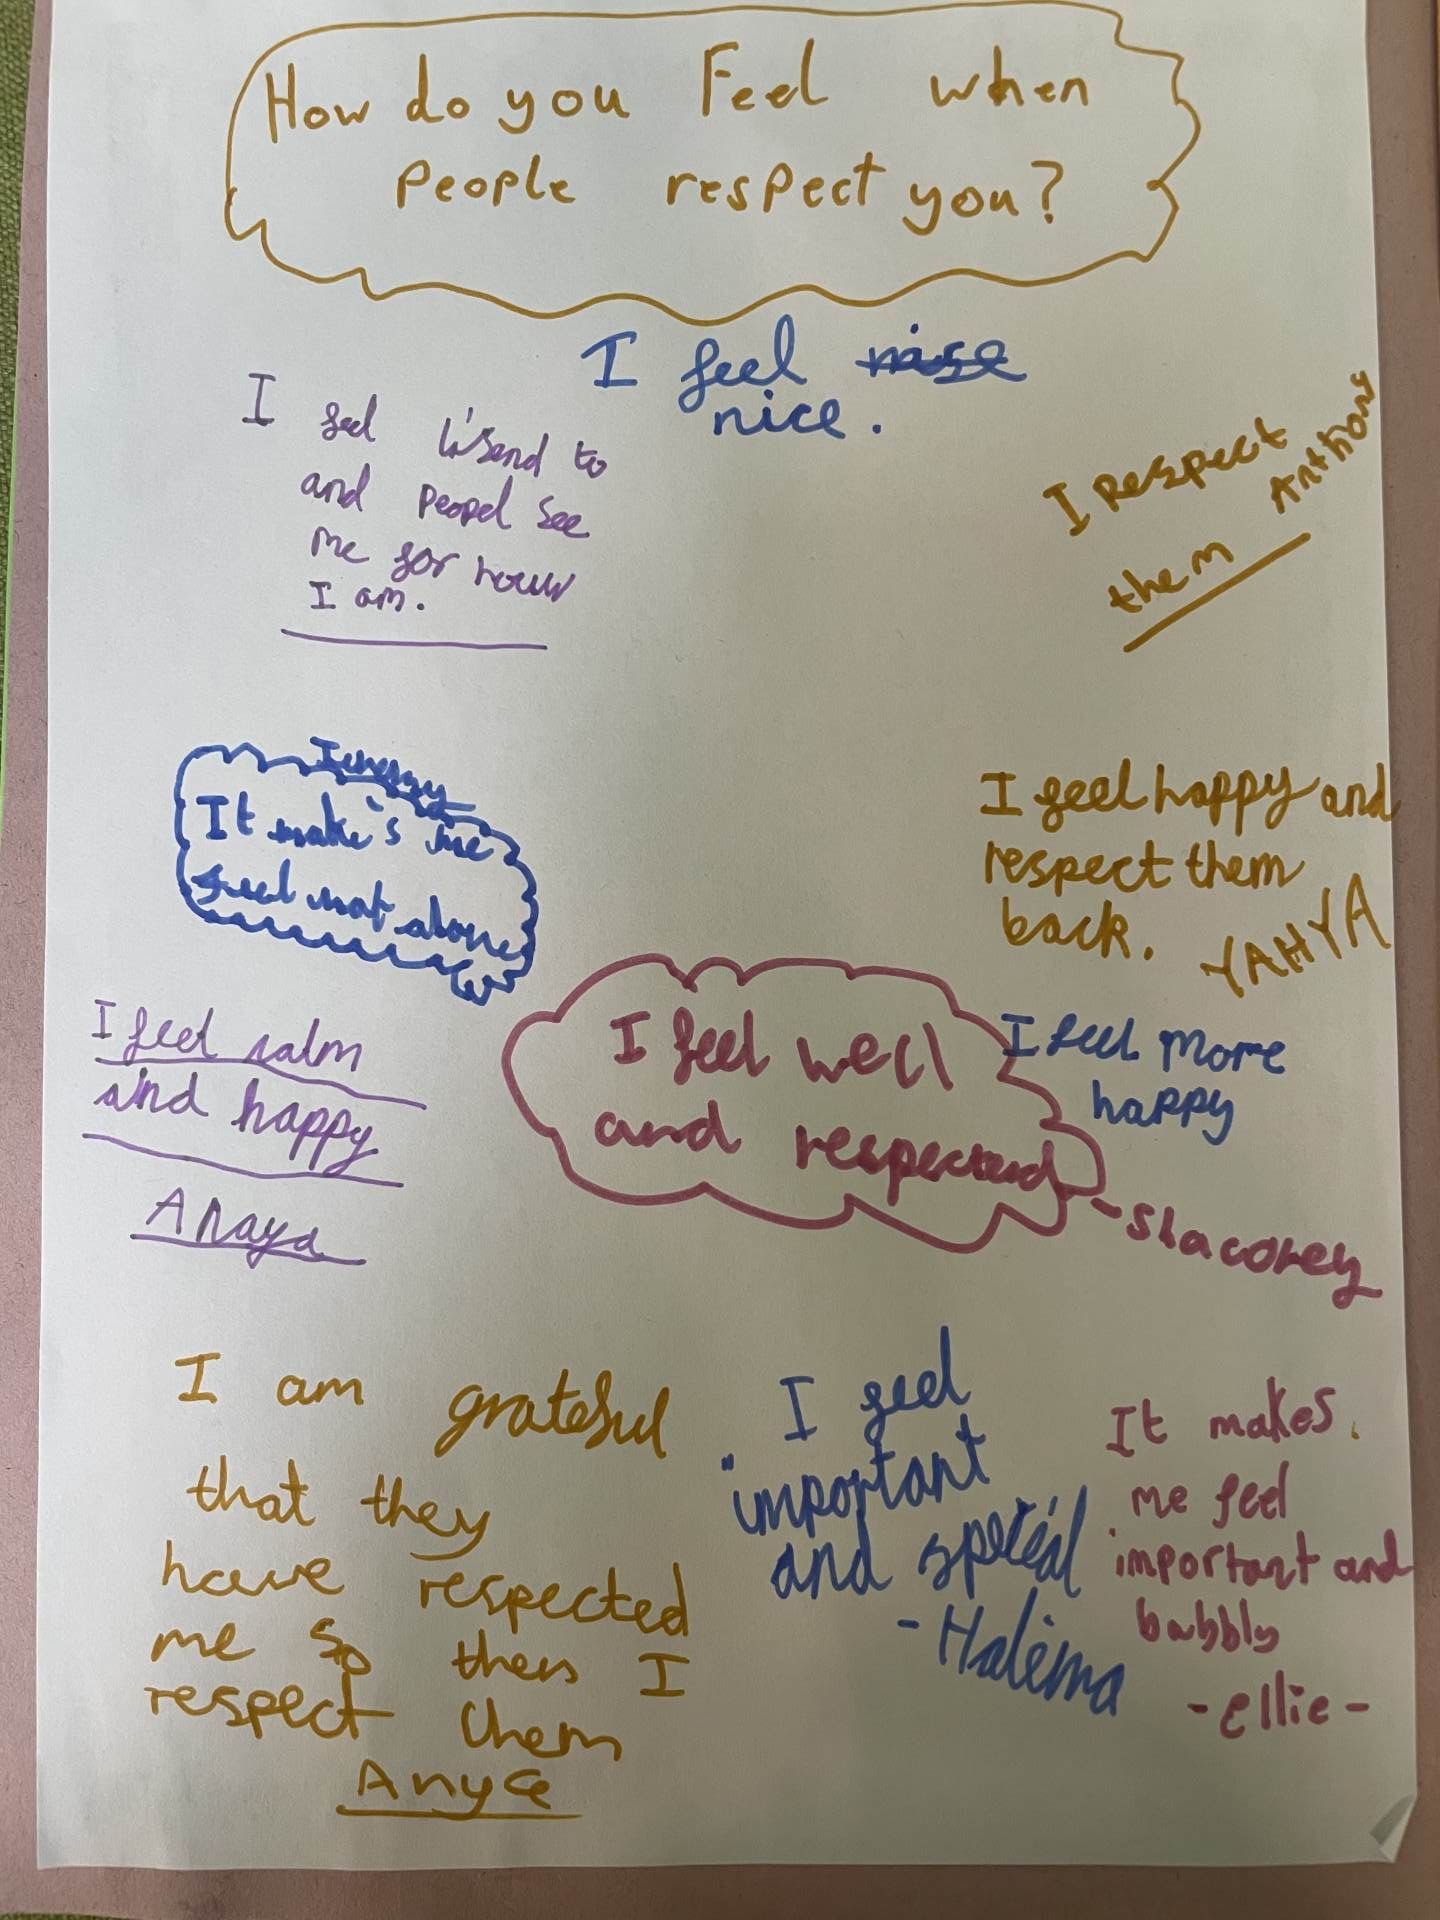 How do you Feel when
People respect you?
I feel nise
nice.
I feel li'send to
and peopel see
me for how
I am.
I respect
them
Anthony
It make's me
feel not alone
I feel happy and
respect them
back.
YAHYA
I feel calm
and happy
Anaya
I feel well
and respected
-Shacorey
I feel more
happy
I am grateful
that they
have respected
me so then I
respect them
Anyce
I feel
important
and special
-Halema
It makes.
me feel
important and
bubbly
-Ellie-